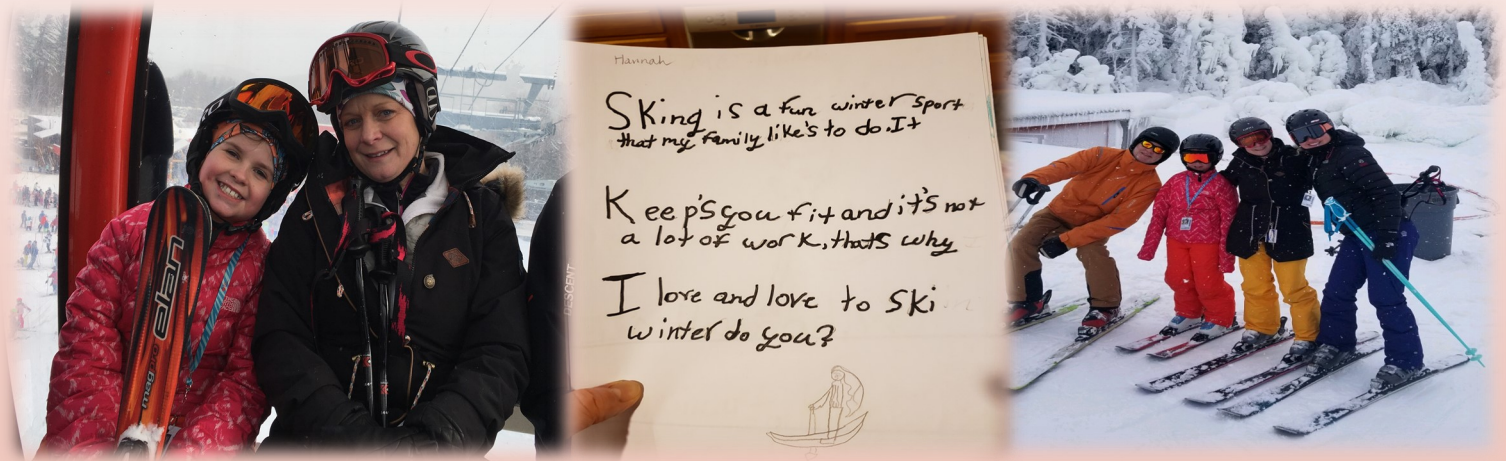 elan
magfire
DESCENT
Hannah
SKing is a fun winter sport
that my family like's to do. It
Keep's you fit and it's not
a lot of work, thats why
I love and love to ski
winter do you?